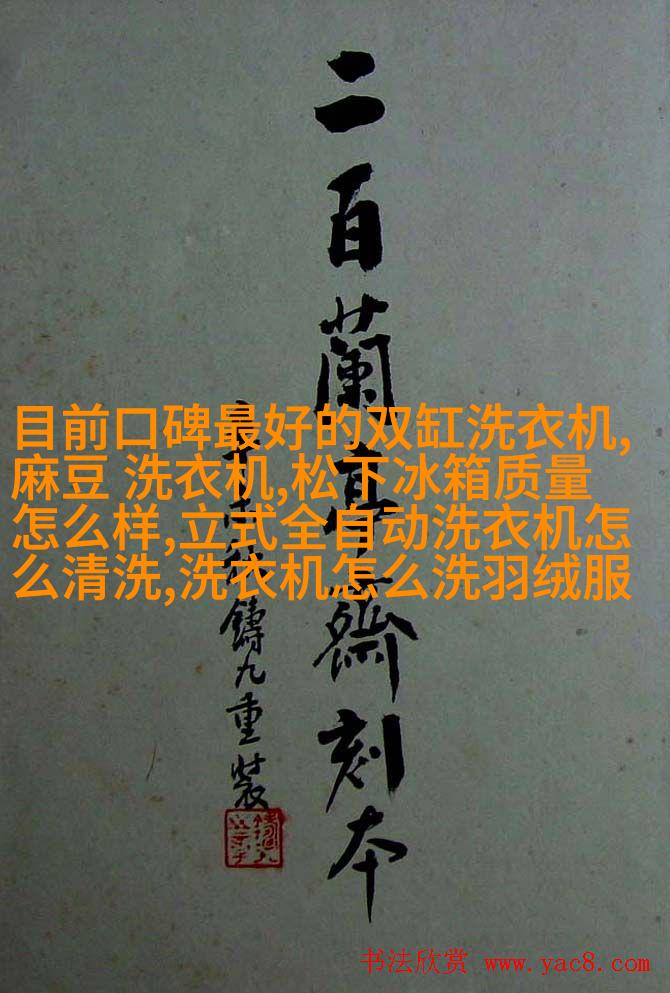 二百蘭亭齋刻本
鑄九重裝
目前口碑最好的双缸洗衣机,
麻豆 洗衣机,松下冰箱质量
怎么样,立式全自动洗衣机怎
么清洗,洗衣机怎么洗羽绒服
书法欣赏 www.yac8.com